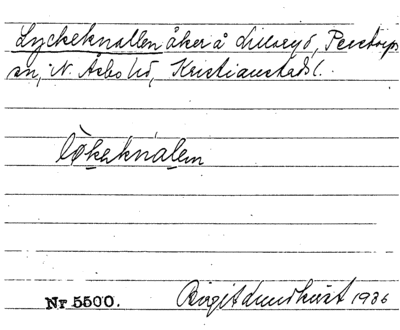 Lyckeknallen åker å Lillaryd, Perstorps
sn, N. Åsbo hd, Kristianstads l.
lökeknalen
Nr 5500. Birgit Lundkvist 1936